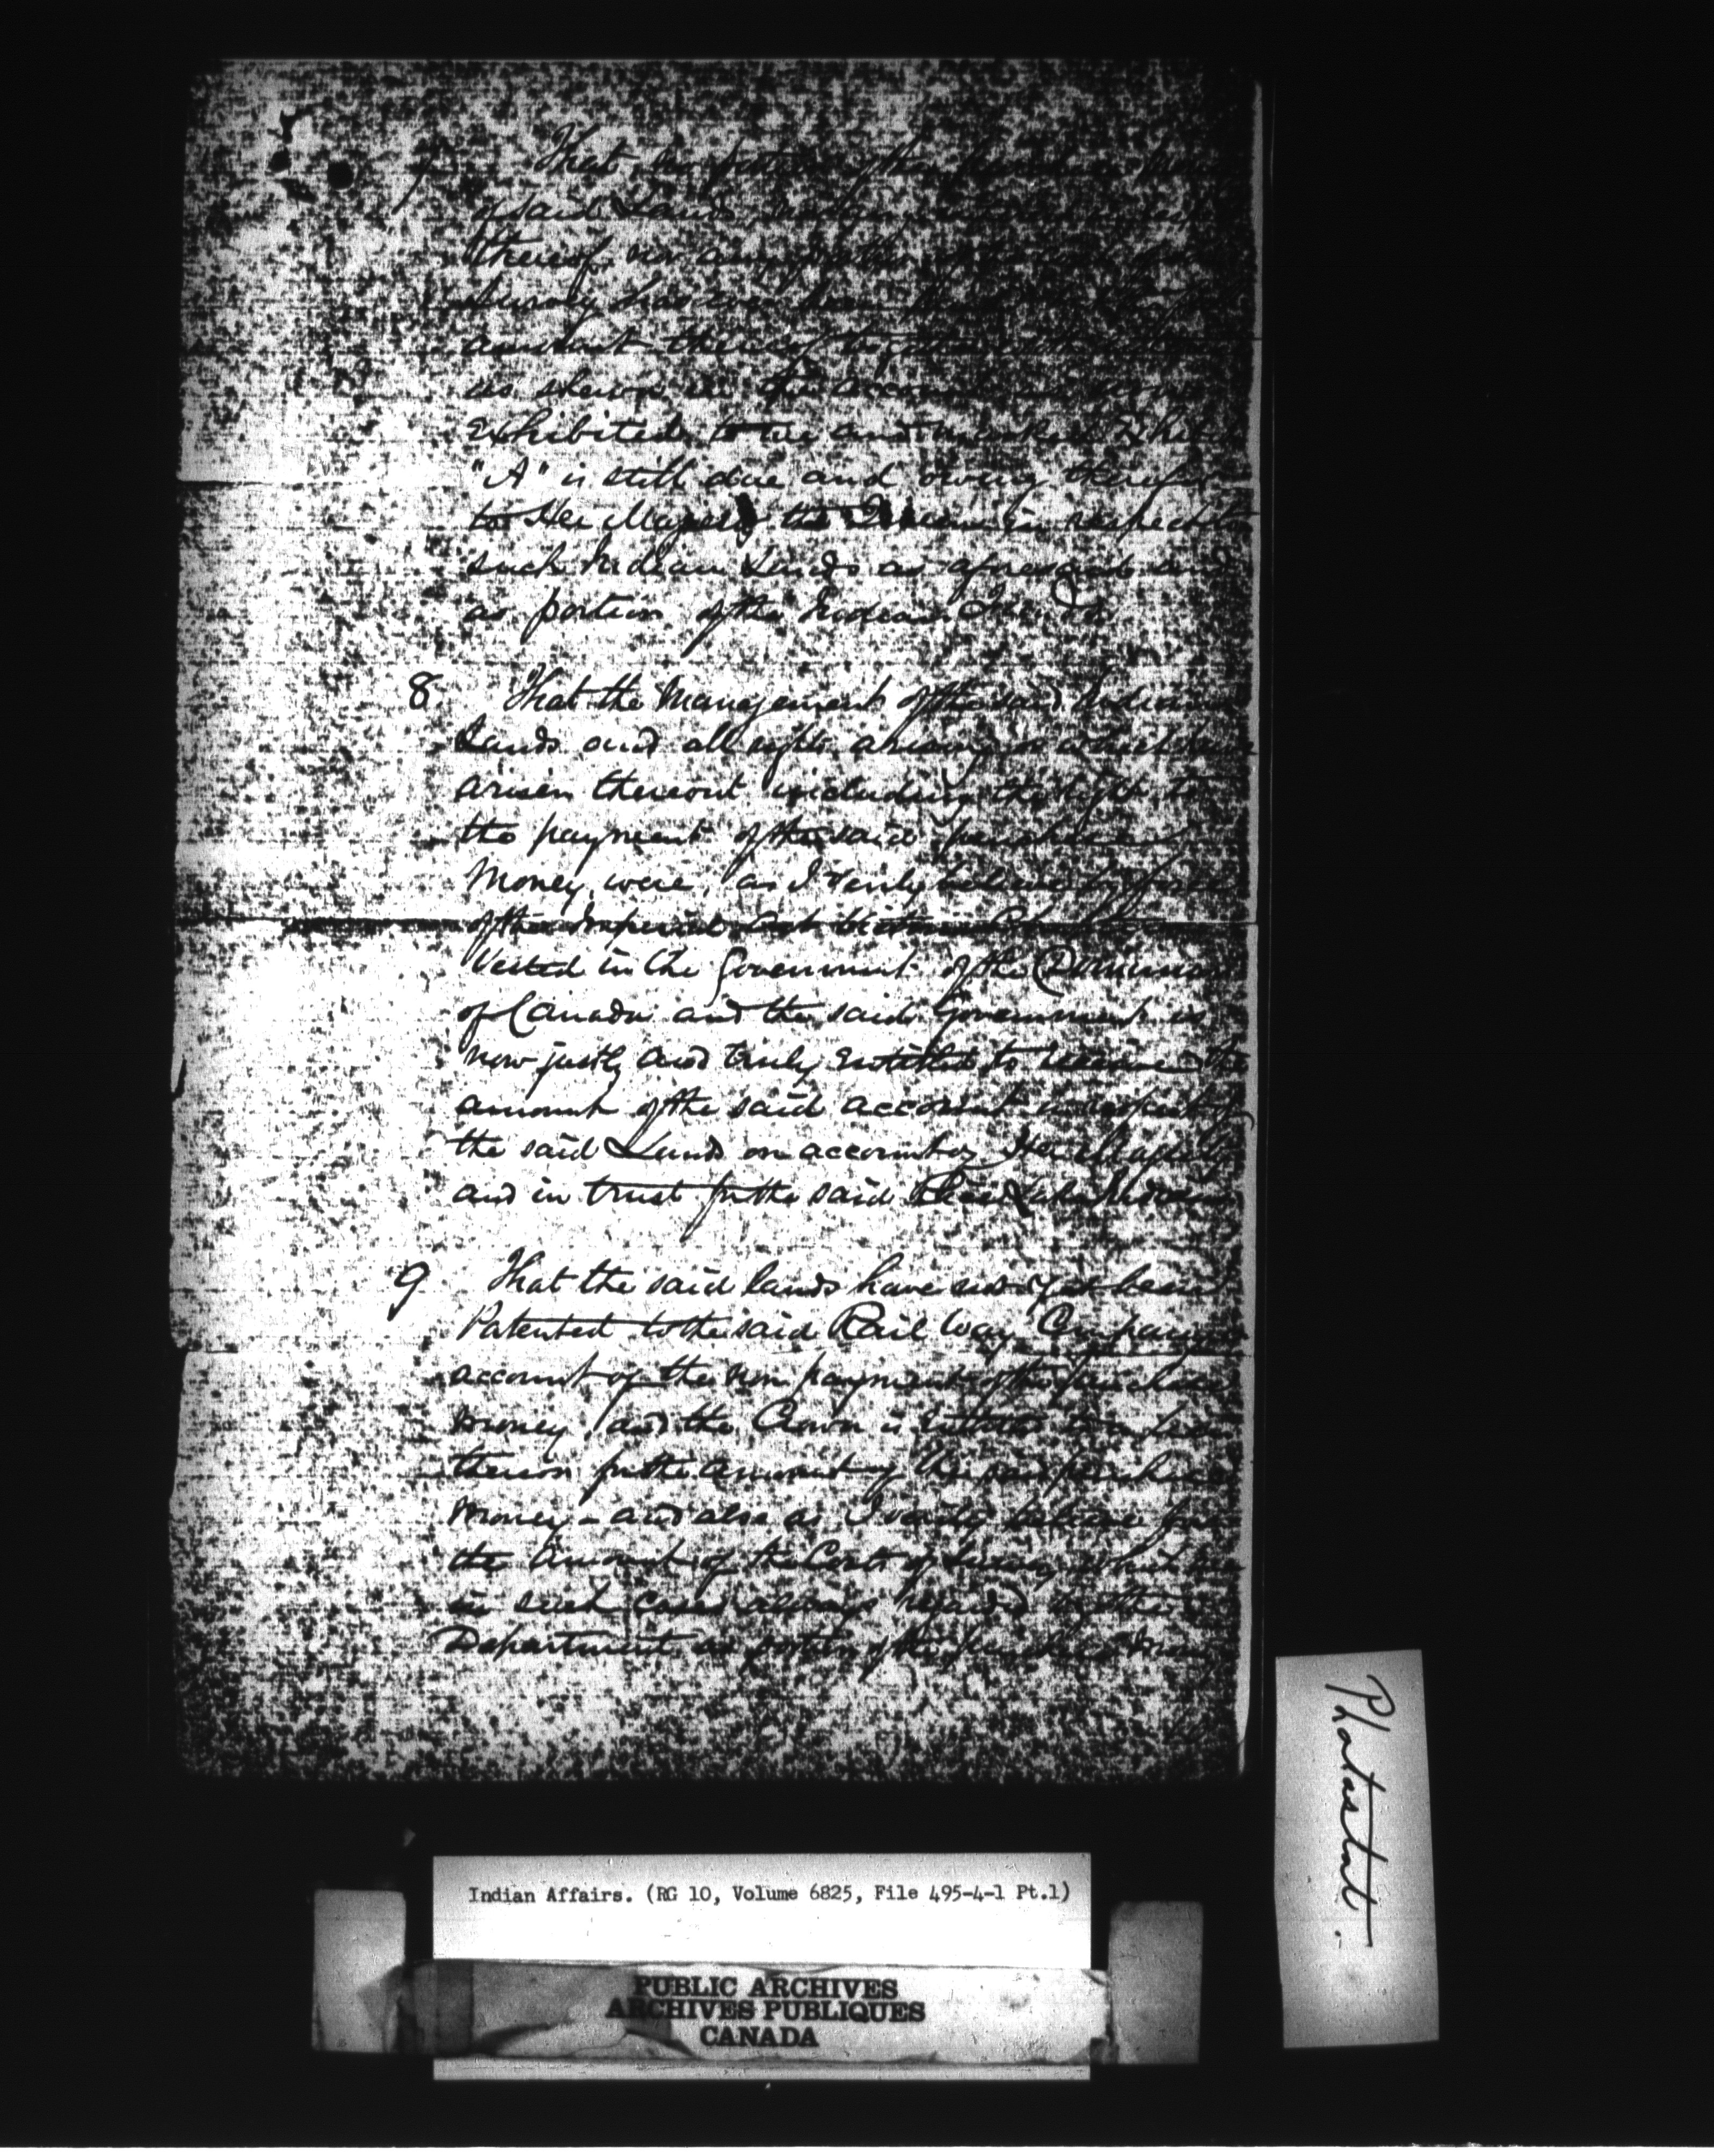 7. That no portion of the purchase
of said Lands
thereof nor any portion of the
survey has ever been
amount thereof together with
as shewn in the account
exhibited to me and marked Exhibit
"A" is still due and owing therefor
to Her Majesty the Queen in respect to
such Indian Lands as aforesaid and
as portion of the Indian
8. That the Management of the said Indian
Lands and all rights arising or which have
arisen thereout including the right to
the payment of the said purchase
Money, were, as I verily believe by force
of the Imperial Act
Vested in the Government of the Dominion
of Canada and the said Government is
now justly and truly entitled to receive the
amount of the said account in respect of
the said Lands on account of Her Majesty
and in trust for the said Rice Lake Indians
9 That the said lands have not yet been
Patented to the said Rail Way Company
account of the non payment of the purchase
money and the Crown is entitled to a Lien
thereon for the amount of the said purchase
Money - and also as I verily believe for
the amount of the Costs of survey which
in such cases always regarded by the
Department as portion of the purchase money
Photostat.
Indian Affairs. (RG 10, Volume 6825, File 495-4-1 Pt.1)
PUBLIC ARCHIVES
ARCHIVES PUBLIQUES
CANADA